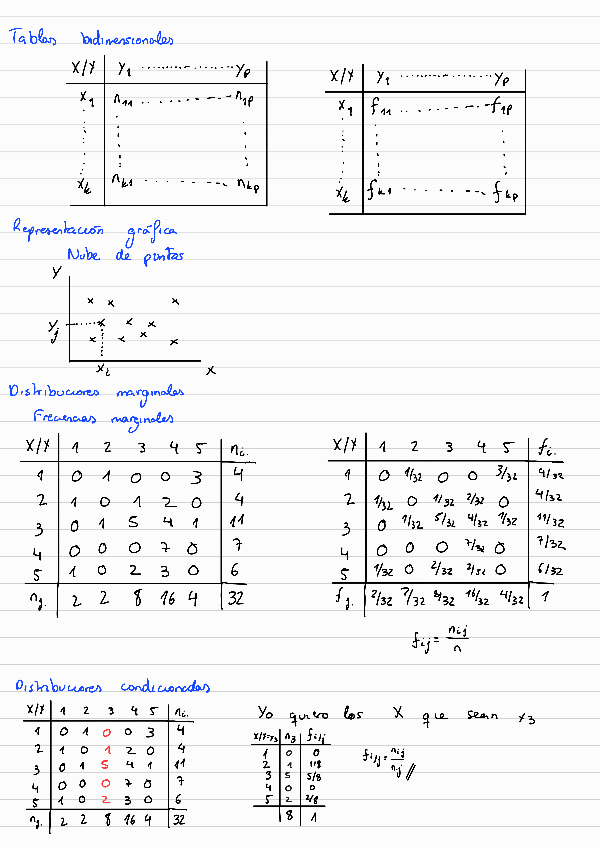 Tablas bidimensionales
X/Y y1 ........ yp
x1 n11 ........ n1p
xk nk1 ........ nkp
X/Y y1 ........ yp
x1 f11 ........ f1p
xk fk1 ........ fkp
Representación gráfica
Nube de puntos
Y
yj
xi X
Distribuciones marginales
Frecuencias marginales
X/Y 1 2 3 4 5 ni.
1 0 1 0 0 3 4
2 1 0 1 2 0 4
3 0 1 5 4 1 11
4 0 0 0 7 0 7
5 1 0 2 3 0 6
nj. 2 2 8 16 4 32
X/Y 1 2 3 4 5 fi.
1 0 1/32 0 0 3/32 4/32
2 1/32 0 1/32 2/32 0 4/32
3 0 1/32 5/32 4/32 1/32 11/32
4 0 0 0 7/32 0 7/32
5 1/32 0 2/32 0 6/32
fj. 2/32 2/32 8/32 16/32 4/32 1
fij = nij/n
Distribuciones condicionadas
X/Y 1 2 3 4 5 ni.
1 0 1 0 0 3 4
2 1 0 1 2 0 4
3 0 1 5 4 1 11
4 0 0 0 7 0 7
5 1 0 2 3 0 6
nj. 2 2 8 16 4 32
Yo quiero los X que sean x3
n3 fi/j
1 0 0
2 1 1/8
3 5 5/8
4 0 0
5 2 2/8
8 1
fi/j = nij/nj